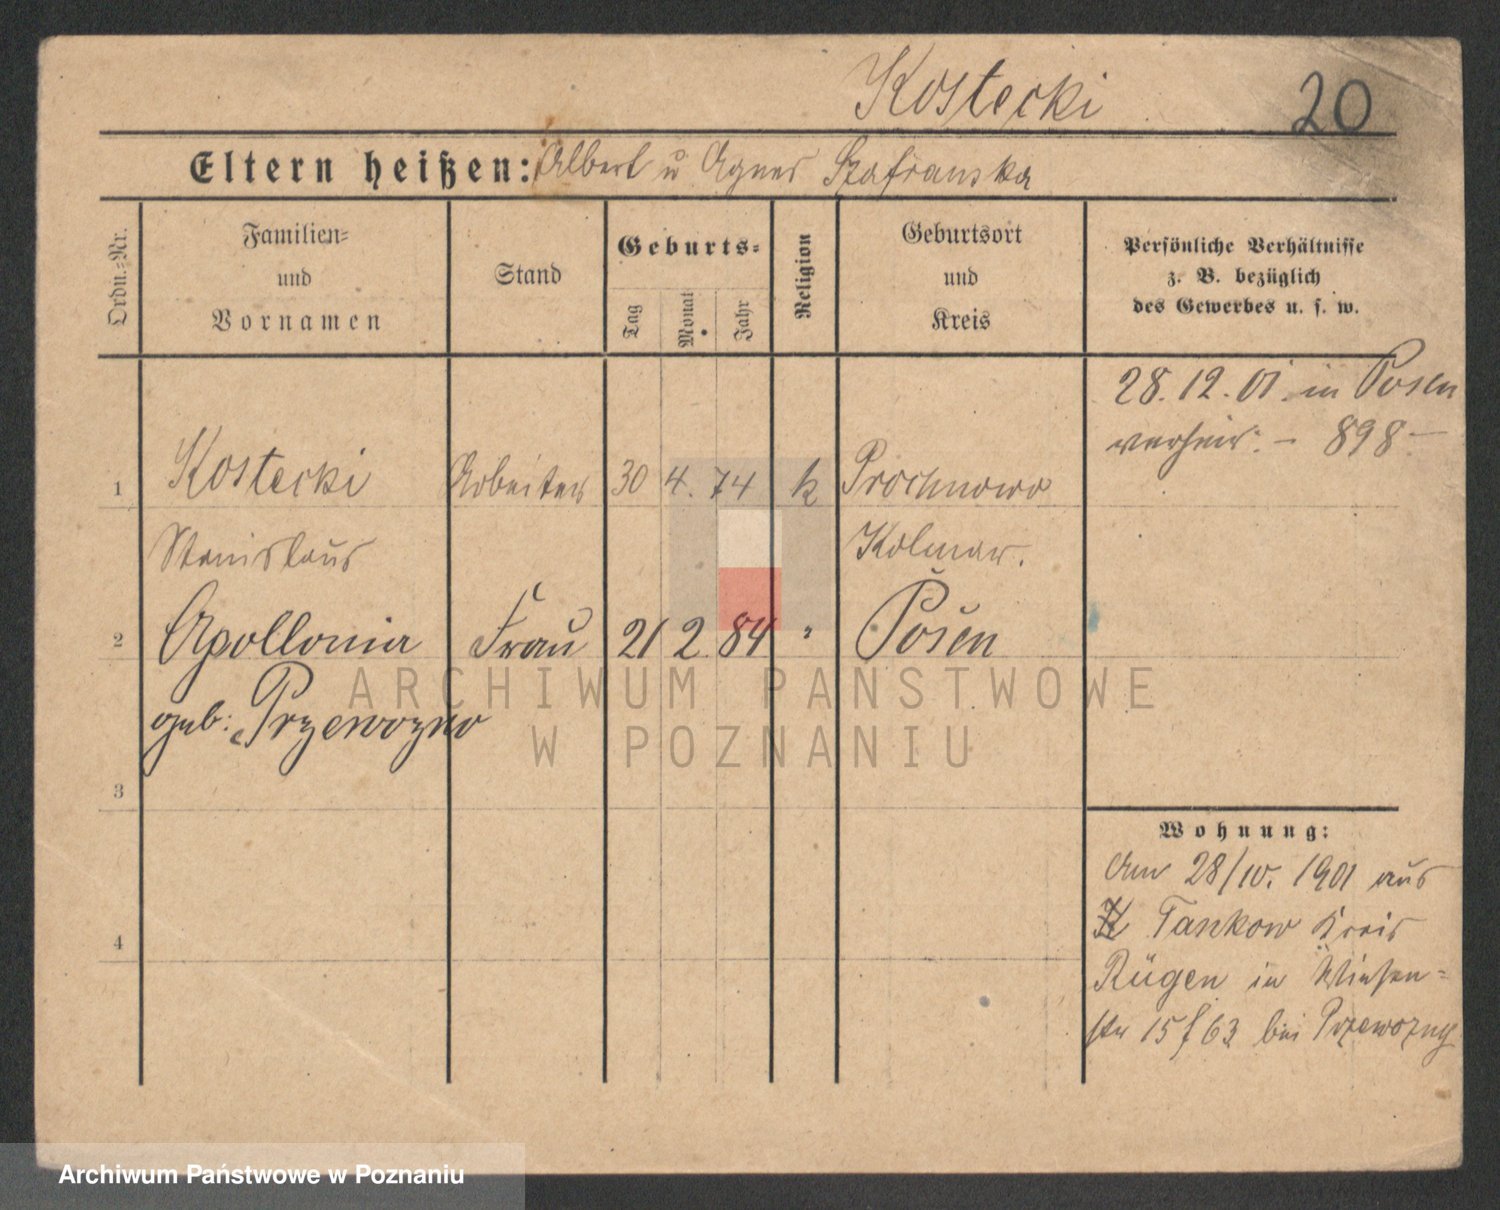 Kostecki 20
Eltern heißen: Albert u Agnes Szafranska
Ordn.=Nr.
Familien=
und
Vornamen
Stand
Geburts=
Tag
Monat
Jahr
Religion
Geburtsort
und
Kreis
Persönliche Verhältnisse
z. B. bezüglich
des Gewerbes u. s. w.
28. 12. 01. in Posen
verheir. – 898 –
1 Kostecki Arbeiter 30 4. 74 k Prochnowo
Stanislaus Kolmar.
2 Apollonia Frau 21 2. 84 " Posen
geb: Przewozno
3
4
Wohnung:
Am 28/10. 1901 aus
Tankow Kreis
Rügen in Wiesen=
str 15 f 63 bei Przewozny
ARCHIWUM PAŃSTWOWE
W POZNANIU
Archiwum Państwowe w Poznaniu